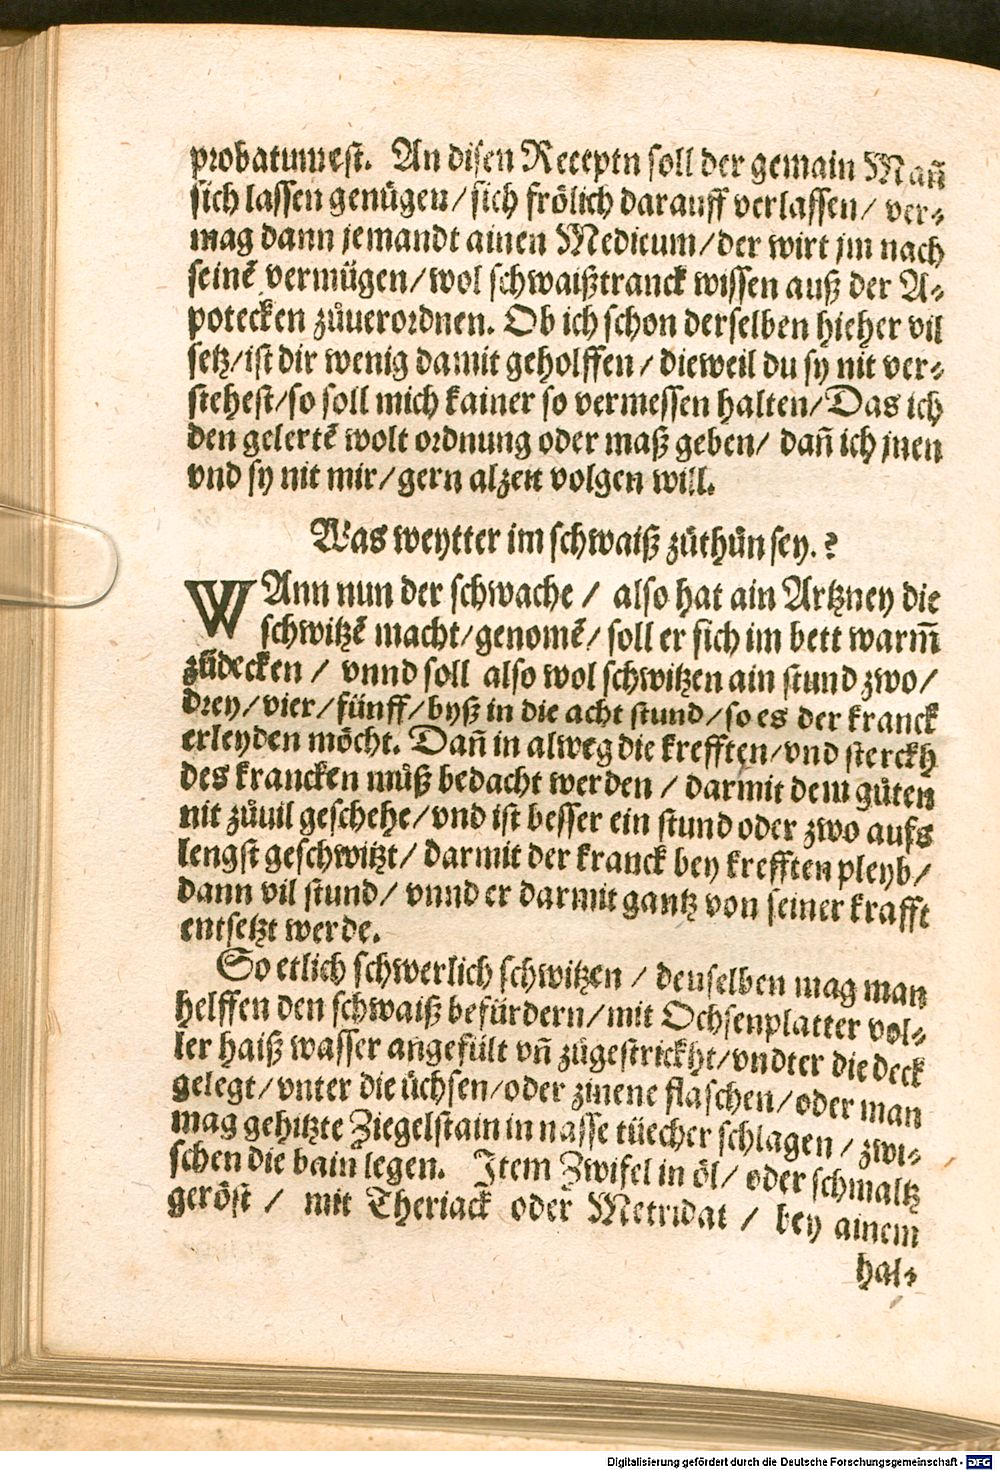 probatum est. An disen Receptn soll der gemain Mañ
sich lassen genügen/ sich frölich darauff verlassen/ ver⸗
mag dann jemandt ainen Medicum/ der wirt jm nach
seinẽ vermügen/ wol schwaißtranck wissen auß der A⸗
potecken zůuerordnen. Ob ich schon derselben hieher vil
setz/ ist dir wenig damit geholffen/ dieweil du sy nit ver⸗
stehest/ so soll mich kainer so vermessen halten/ Das ich
den gelertẽ wolt ordnung oder maß geben/ dañ ich jnen
vnd sy nit mir/ gern alzeit volgen will.
Was weytter im schwaiß zůthůn sey.?
WAnn nun der schwache/ also hat ain Artzney die
schwitzẽ macht/ genomẽ/ soll er sich im bett warm̃
zůdecken/ vnnd soll also wol schwitzen ain stund zwo/
drey/ vier/ fünff/ byß in die acht stund/ so es der kranck
erleyden möcht. Dañ in alweg die krefften/ vnd sterckh
des krancken můß bedacht werden/ darmit dem gůten
nit zůuil geschehe/ vnd ist besser ein stund oder zwo aufs
lengst geschwitzt/ darmit der kranck bey krefften pleyb/
dann vil stund/ vnnd er darmit gantz von seiner krafft
entsetzt werde.
So etlich schwerlich schwitzen/ denselben mag man
helffen den schwaiß befürdern/ mit Ochsenplatter vol⸗
ler haiß wasser angefült vñ zůgestrickht/ vndter die deck
gelegt/ vnter die üchsen/ oder zinene flaschen/ oder man
mag gehitzte Ziegelstain in nasse tüecher schlagen/ zwi⸗
schen die bain legen. Item Zwifel in öl/ oder schmaltz
geröst/ mit Theriack oder Metridat/ bey ainem
hal⸗
Digitalisierung gefördert durch die Deutsche Forschungsgemeinschaft - DFG